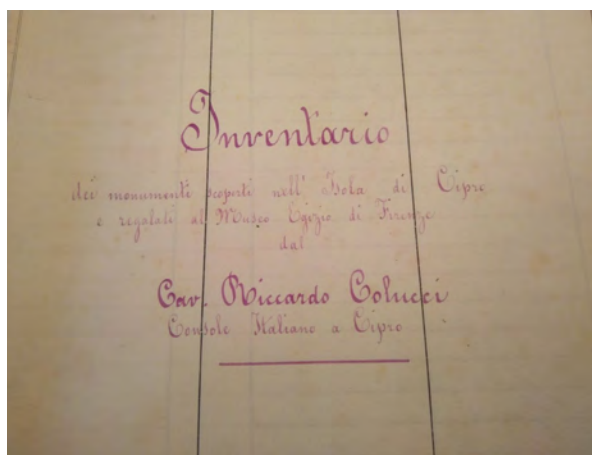 Inventario
dei monumenti scoperti nell' Isola di Cipro
e regalati al Museo Egizio di Firenze
dal
Cav. Riccardo Colucci
Console Italiano a Cipro